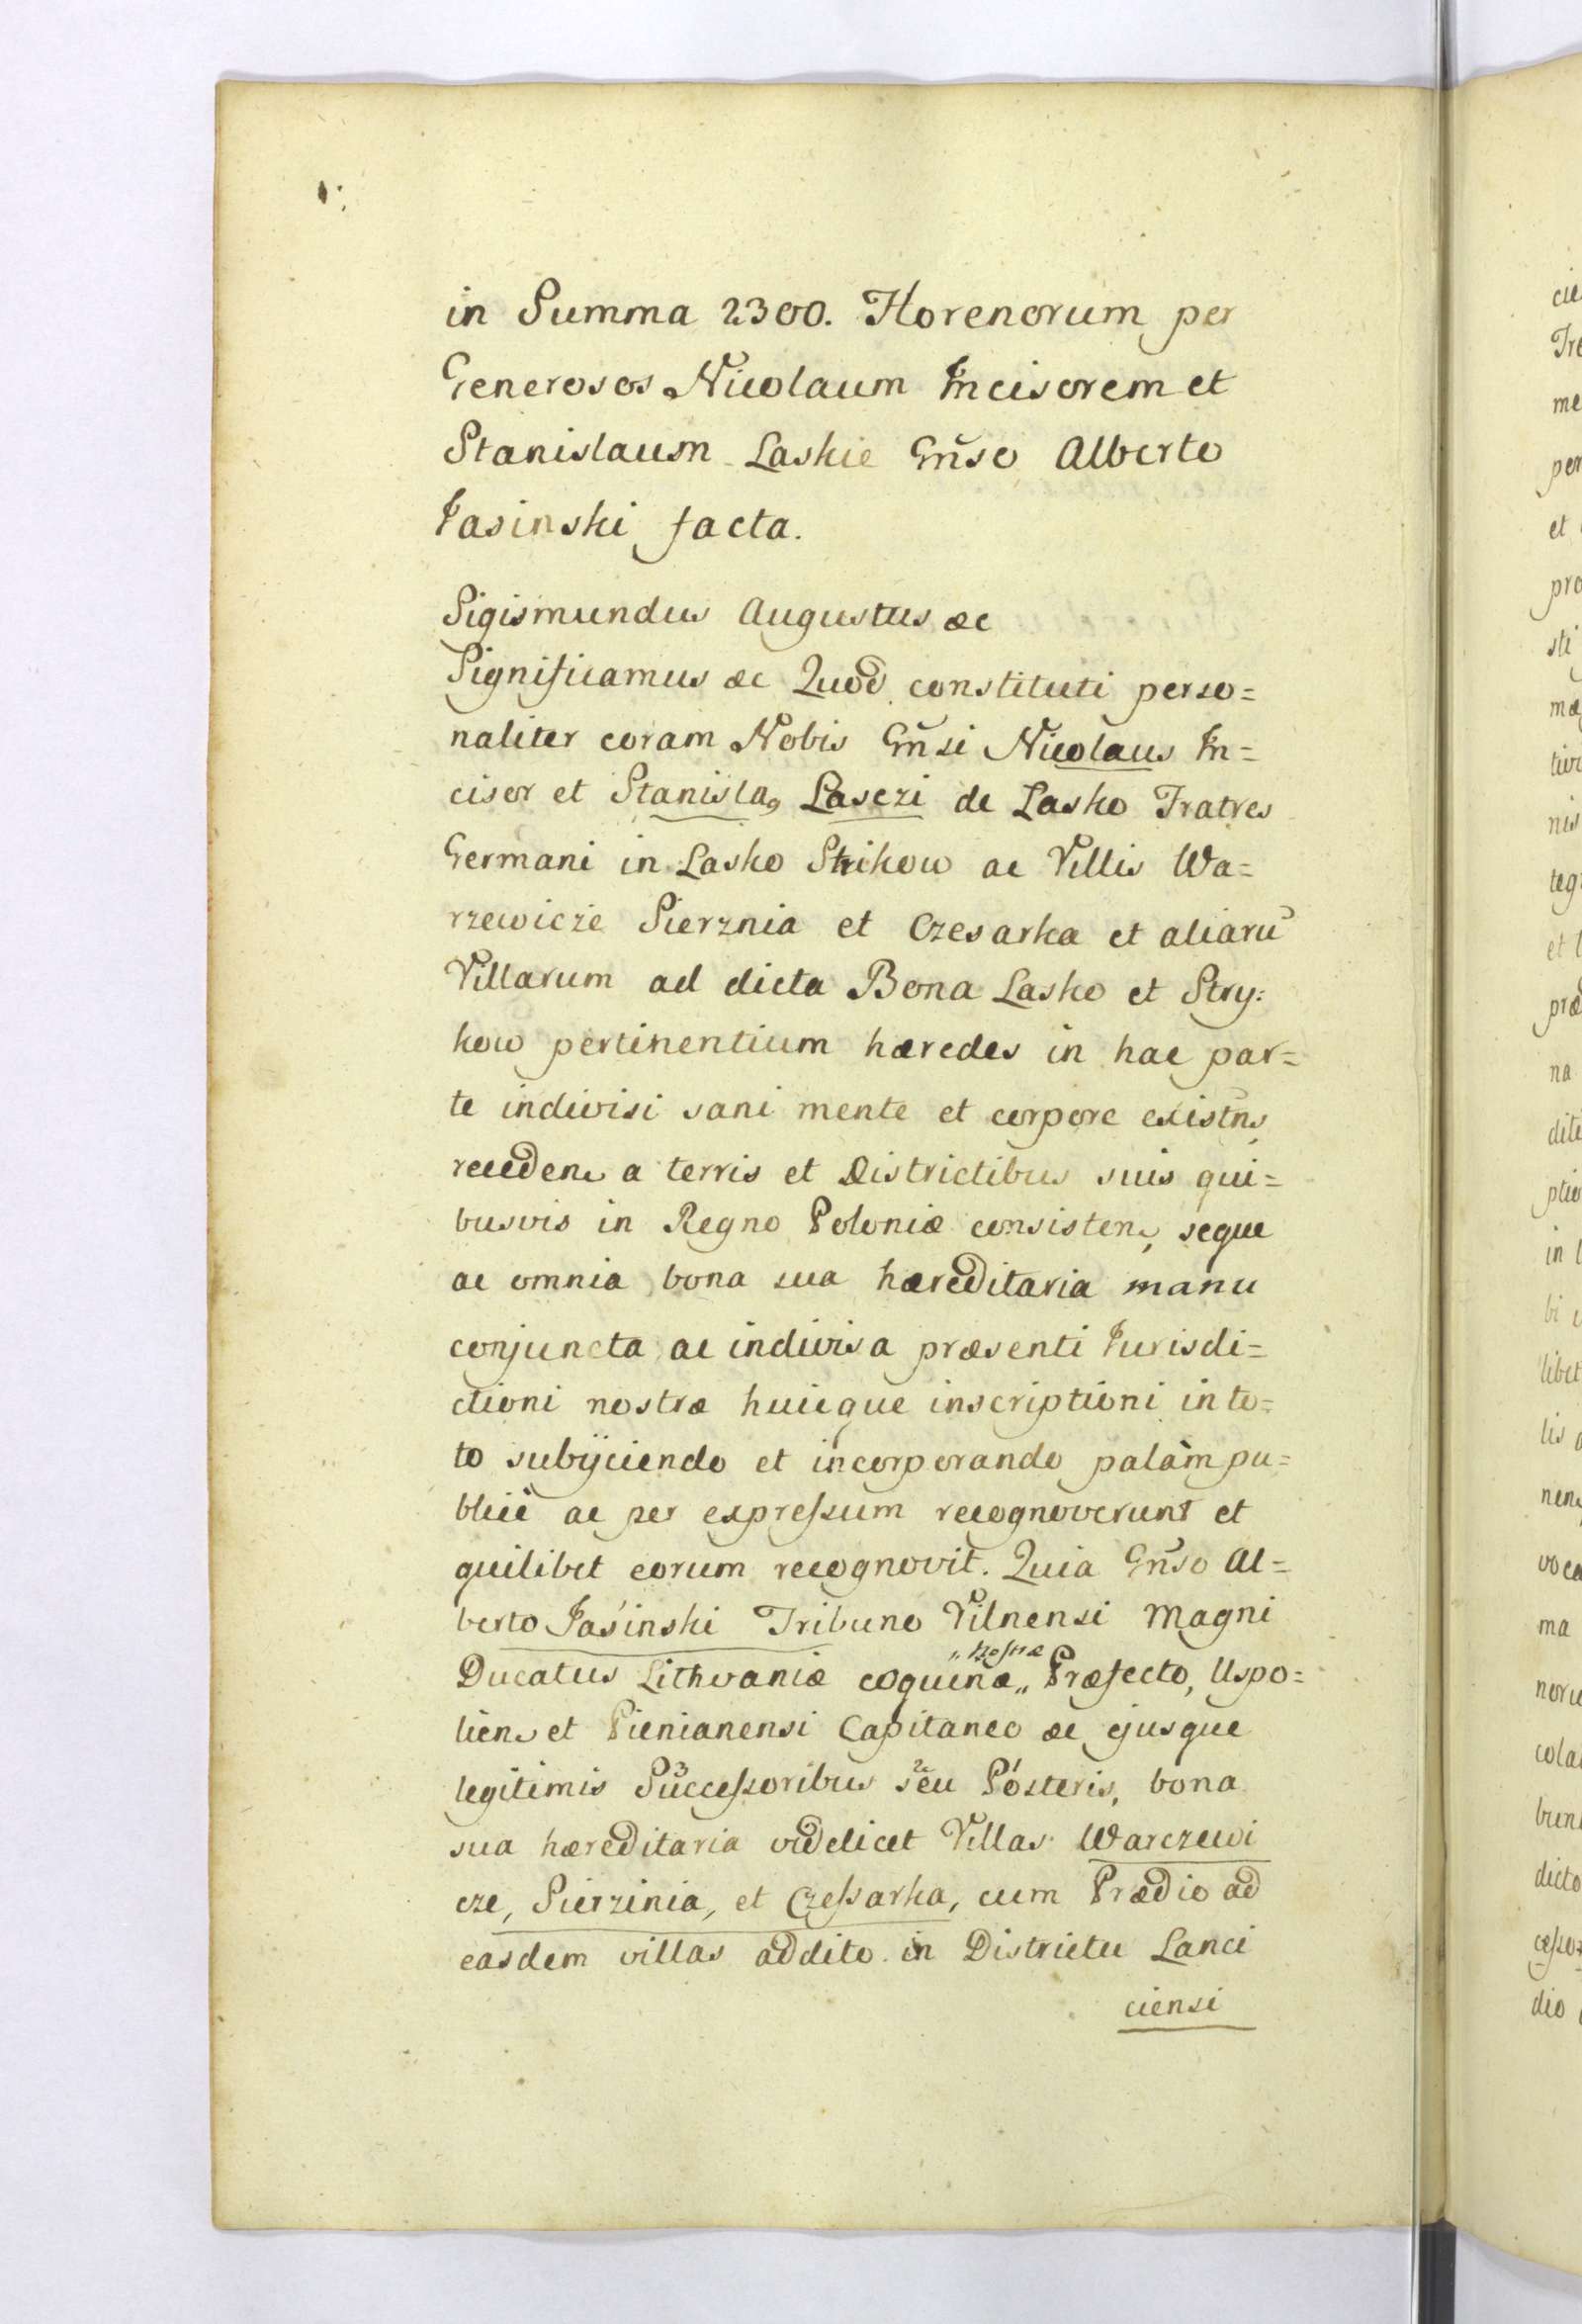 in Summa 2300. Florenorum per
Generosos Nicolaum Incisorem et
Stanislaum Laskie Gñso Alberto
Jasinski facta.
Sigismundus Augustus &c
Significamus &c Quod constituti perso=
naliter coram Nobis Gñsi Nicolaus In=
cisor et Stanisla9 Lasczi de Lasko Fratres
Germani in Lasko Strikow ac Villis Wa=
rzewicze Sierznia et Czesarka et aliarū
Villarum ad dicta Bona Lasko et Stry=
kow pertinentium hæredes in hac par=
te indivisi sani mente et corpore existñs
receden. a terris et Districtibus suis qui=
busvis in Regno Poloniæ consisten. seque
ac omnia bona sua hæreditaria manu
conjuncta ac indivisa præsenti Jurisdi=
ctioni nostræ huicque inscriptioni in to=
to subijciendo et incorporando palàm pu=
blicè ac per expressum recognoverunt et
quilibet eorum recognovit. Quia Gñso Al=
berto Jasinski Tribuno Vilnensi Magni
Ducatus Lithvaniæ coquinæ „ nostræ „ Præfecto, Uspo=
lien. et Pienianensi Capitaneo &c ejusque
legitimis Successoribus seu Posteris, bona
sua hæreditaria videlicet Villas Warczewi
cze, Sierzinia, et Czessarka, cum Prædio ad
easdem villas addito in Districtu Lanci
ciensi